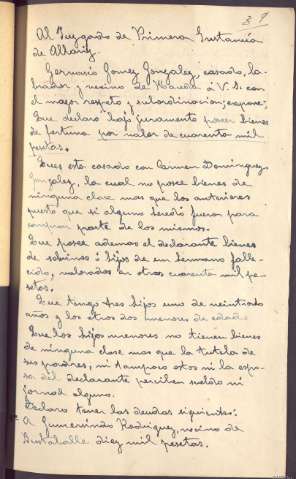 39
Al Juzgado de Primera Instancia
de Allariz.
Germanio Gomez Gonzalez, casado, la-
brador y vecino de á V.S. con
el mayor respeto y subordinacion, expone:
Que declaro bajo juramento poseer bienes
de fortuna por valor de cuarenta mil
pesetas.
Que está casado con Carmen Dominguez
Gonzalez, la cual no posee bienes de
ninguna clase mas que los anteriores
puesto que si alguno heredó fueron para
comprar parte de los mismos.
Que posee ademas el declarante bienes
de sobrinos é hijos de un hermano falle-
cido, valorados en otros cuarenta mil pe-
setas.
Que tengo tres hijos uno de veintiado
años y los otros dos menores de edad.
Que los hijos menores no tienen bienes
de ninguna clase mas que la tutela de
sus padres, ni tampoco estos ni la espo-
sa del declarante perciben sueldo ni
jornal alguno.
Declaro tener las deudas siguientes:
A Gumersindo Rodriguez, vecino de
diez mil pesetas.